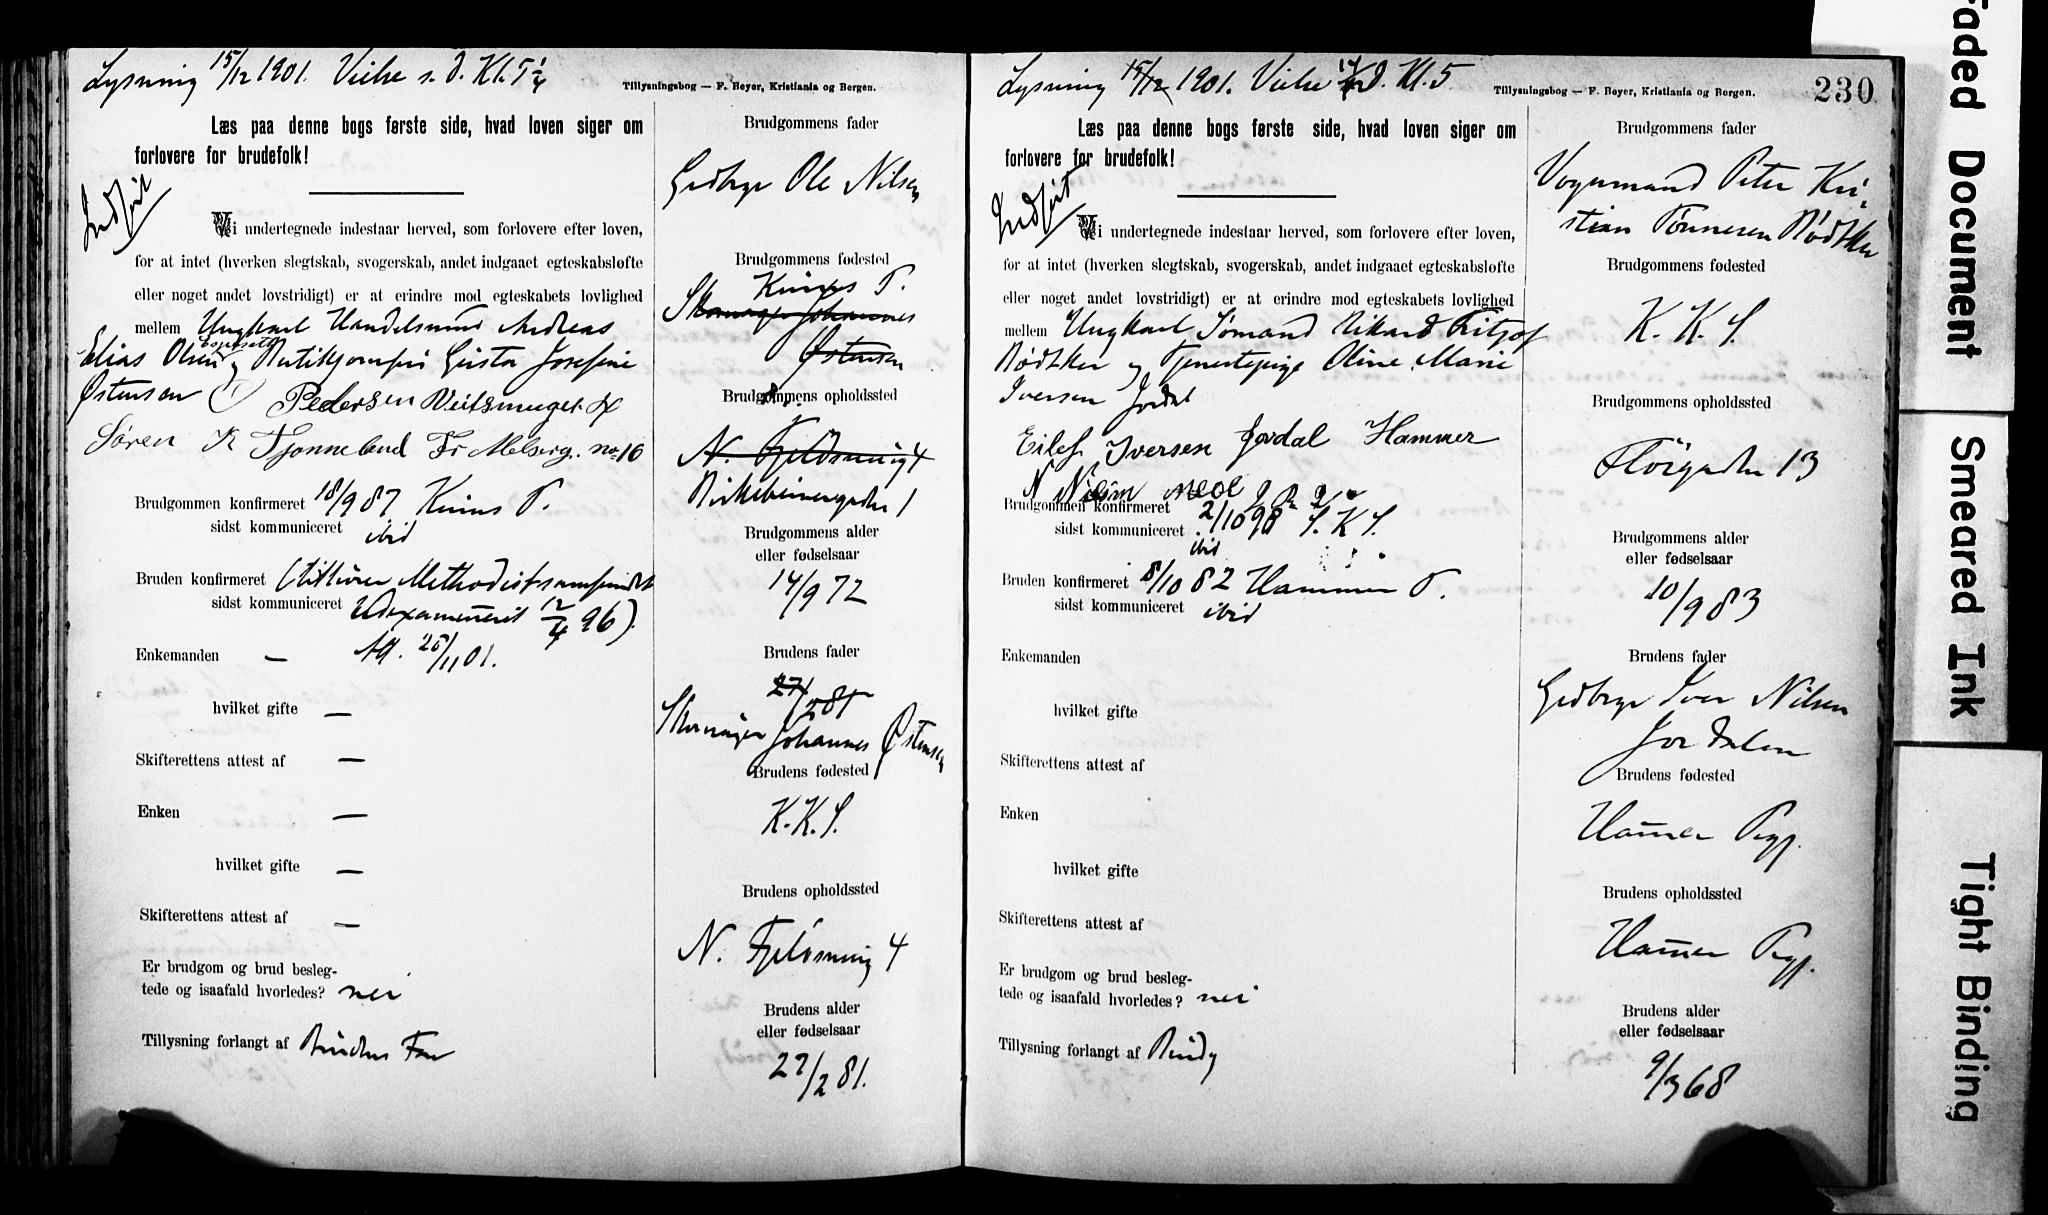 Lysning 15/12 1901. Vielse s. D. Kl. 5 1/4
Tillysningsbog — F. Beyer, Kristiania og Bergen.
Læs paa denne bogs første side, hvad loven siger om
forlovere for brudefolk!
Indført
Vi undertegnede indestaar herved, som forlovere efter loven,
for at intet (hverken slegtskab, svogerskab, andet indgaaet egteskabsløfte
eller noget andet lovstridigt) er at erindre mod egteskabets lovlighed
mellem Ungkarl Handelsmand Andreas
Elias Olsen og Butikjomfru Gusta Josefine
Østensen
Pedersen
Søren K Tjønneland Fr Melsvg. no 16
Brudgommen konfirmeret 18/9 87 Kinns P.
sidst kommuniceret ibid
Bruden konfirmeret (tilhører Methodistsamfundet
sidst kommuniceret Udexamineret 12/4 96).
Att. 25/11 01.
Enkemanden —
hvilket gifte —
Skifterettens attest af —
Enken —
hvilket gifte —
Skifterettens attest af —
Er brudgom og brud besleg-
tede og isaafald hvorledes? nei
Tillysning forlangt af Brudens Far
Brudgommens fader
Gedbrge Ole Nilsen
Brudgommens fødested
Kinns P.
Skomager Johannes
Østensen
Brudgommens opholdssted
N. Fjeldsmug 4
Birkebeinergaden 1
Brudgommens alder
eller fødselsaar
14/9 72
Brudens fader
27/2 81
Skomager Johannes Østensen
Brudens fødested
K. K. S.
Brudens opholdssted
N. Fjeldsmug 4
Brudens alder
eller fødselsaar
27/2 81.
Lysning 15/12 1901. Vielse D. Kl. 5
Tillysningsbog — F. Beyer, Kristiania og Bergen.
230
Læs paa denne bogs første side, hvad loven siger om
forlovere for brudefolk!
Indført
Vi undertegnede indestaar herved, som forlovere efter loven,
for at intet (hverken slegtskab, svogerskab, andet indgaaet egteskabsløfte
eller noget andet lovstridigt) er at erindre mod egteskabets lovlighed
mellem Ungkarl Sømand Rikard Fritjof
Rødtker og Tjenestepige Oline Marie
Iversen Jordal
Eilef Iversen Jordal Hammer
Brudgommen konfirmeret 2/10 98 S. K. S.
sidst kommuniceret ibid
Bruden konfirmeret 8/10 82 Hammer P.
sidst kommuniceret ibid
Enkemanden
hvilket gifte
Skifterettens attest af
Enken
hvilket gifte
Skifterettens attest af
Er brudgom og brud besleg-
tede og isaafald hvorledes? nei
Tillysning forlangt af Brudg
Brudgommens fader
Vognmand Peter Kri-
stian Tønnesen Rødtker
Brudgommens fødested
K. K. S.
Brudgommens opholdssted
Flörgaden 13
Brudgommens alder
eller fødselsaar
10/9 83
Brudens fader
Gedbrge Iver Nilsen
Jordalen
Brudens fødested
Hamer Prgj.
Brudens opholdssted
Hamer Prgj.
Brudens alder
eller fødselsaar
9/3 68
Faded Document
Smeared Ink
Tight Binding